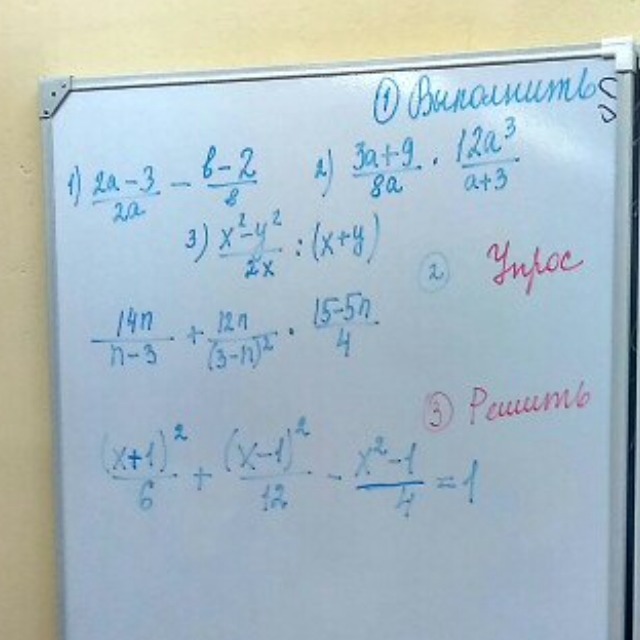 ① Выполнить
1) (2a-3)/(2a) - (b-2)/8   2) (3a+9)/(8a) · (12a³)/(a+3)
3) (x²-y²)/(2x) : (x+y)
② Упрос
(14n)/(n-3) + (12n)/((3-n)²) · (15-5n)/4
③ Решить
(x+1)²/6 + (x-1)²/12 - (x²-1)/4 = 1